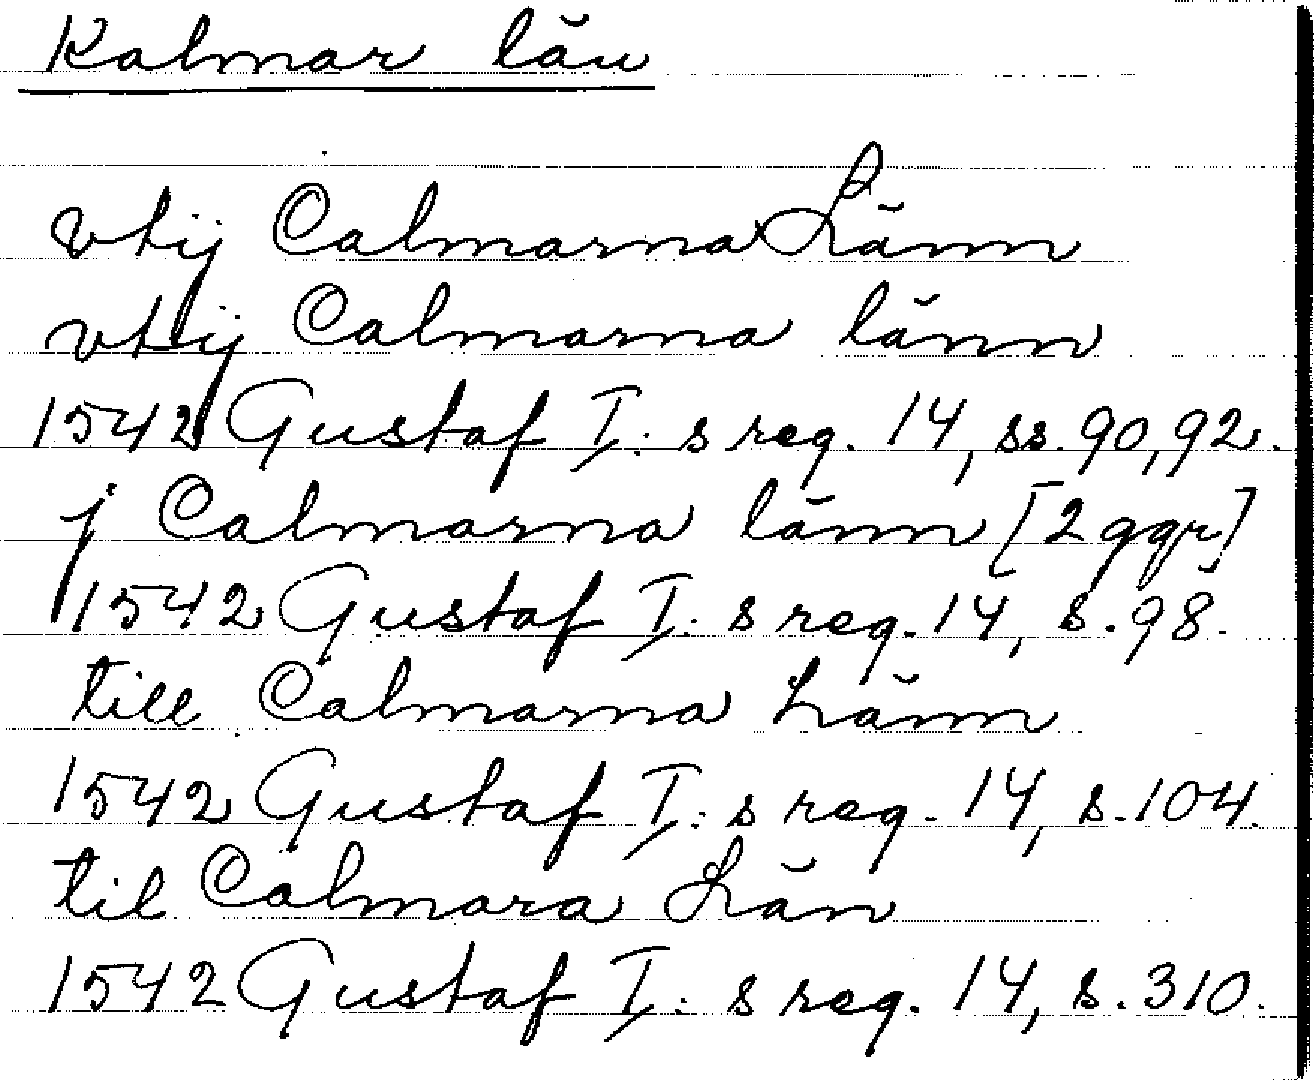 Kalmar län
vtij Calmarna Länn
vtij Calmarna länn
1542 Gustaf I:s reg. 14, ss. 90, 92.
j Calmarna länn [2 ggr]
1542 Gustaf I:s reg. 14, s. 98.
till Calmarna Länn
1542 Gustaf I:s reg. 14, s. 104.
til Calmara Län
1542 Gustaf I:s reg. 14, s. 310.